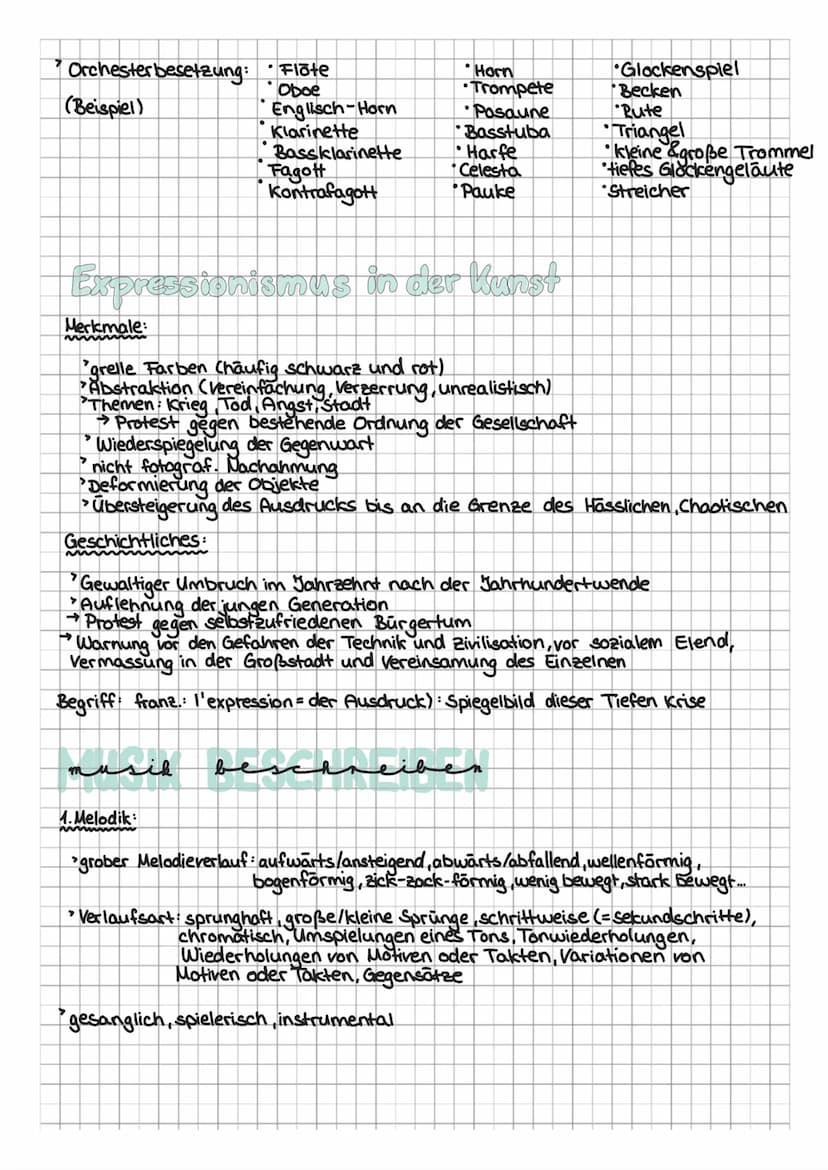 > Orchesterbesetzung: • Flöte • Horn • Glockenspiel
• Oboe • Trompete • Becken
(Beispiel) • Englisch-Horn • Posaune • Rute
• Klarinette • Basstuba • Triangel
• Bassklarinette • Harfe • kleine & große Trommel
• Fagott • Celesta • tiefes Glockengeläute
• Kontrafagott • Pauke • Streicher
Expressionismus in der Kunst
Merkmale:
> grelle Farben (häufig schwarz und rot)
> Abstraktion (Vereinfachung, Verzerrung, unrealistisch)
> Themen: Krieg, Tod, Angst, Stadt
→ Protest gegen bestehende Ordnung der Gesellschaft
> Wiederspiegelung der Gegenwart
> nicht fotograf. Nachahmung
> Deformierung der Objekte
> Übersteigerung des Ausdrucks bis an die Grenze des Hässlichen, Chaotischen
Geschichtliches:
> Gewaltiger Umbruch im Jahrzehnt nach der Jahrhundertwende
> Auflehnung der jungen Generation
→ Protest gegen selbstzufriedenen Bürgertum
→ Warnung vor den Gefahren der Technik und Zivilisation, vor sozialem Elend,
Vermassung in der Großstadt und Vereinsamung des Einzelnen
Begriff: franz.: l'expression = der Ausdruck): Spiegelbild dieser Tiefen Krise
MUSIK BESCHREIBEN
musik beschreiben
1. Melodik:
> grober Melodieverlauf: aufwärts/ansteigend, abwärts/abfallend, wellenförmig,
bogenförmig, zick-zack-förmig, wenig bewegt, stark bewegt...
> Verlaufsart: sprunghaft, große/kleine Sprünge, schrittweise (= Sekundschritte),
chromatisch, Umspielungen eines Tons, Tonwiederholungen,
Wiederholungen von Motiven oder Takten, Variationen von
Motiven oder Takten, Gegensätze
> gesanglich, spielerisch, instrumental